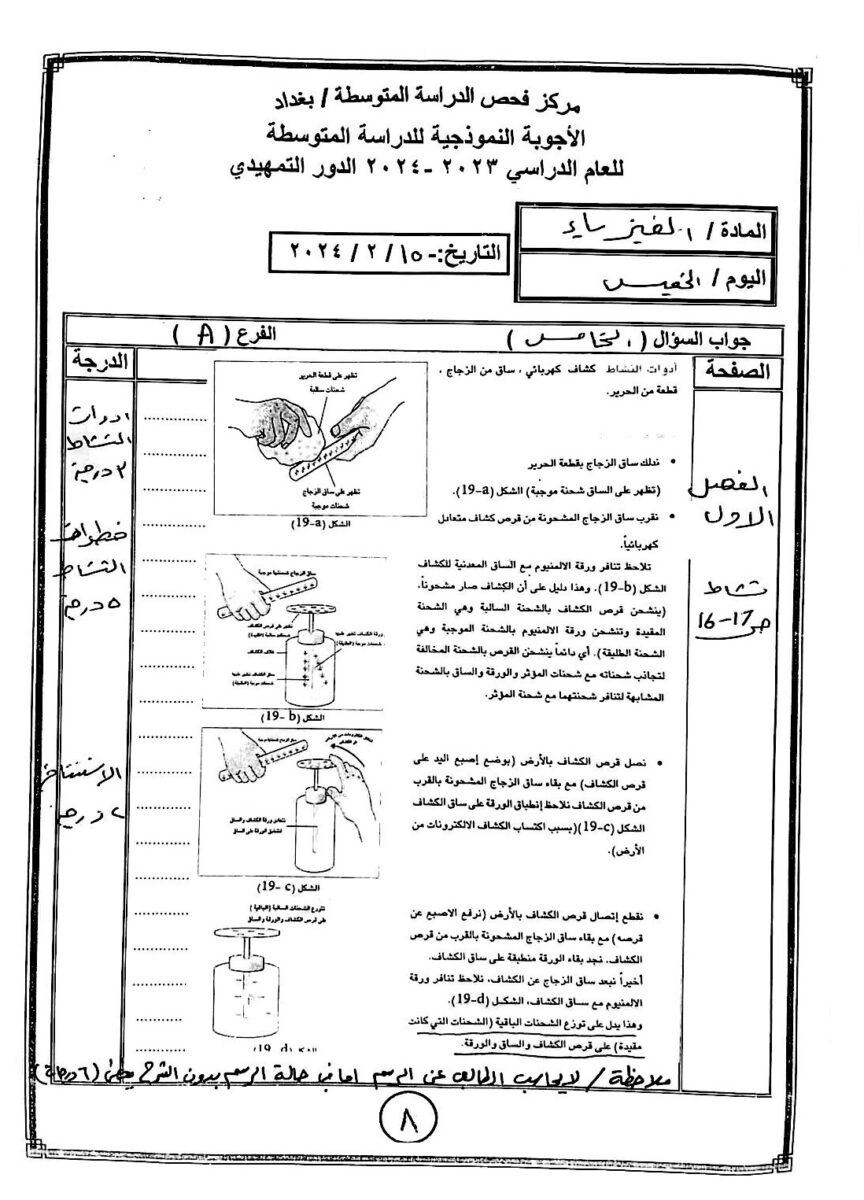 مركز فحص الدراسة المتوسطة / بغداد
الأجوبة النموذجية للدراسة المتوسطة
للعام الدراسي ٢٠٢٣ -٢٠٢٤ الدور التمهيدي
المادة / الفيزياء
اليوم / الخميس
التاريخ:- ١٥ / ٢ / ٢٠٢٤
جواب السؤال ( الخامس )
الفرع ( A )
الصفحة
الدرجة
الفصل
الاول
نشاط
ص 16-17
أدوات النشاط كشاف كهربائي ، ساق من الزجاج ،
قطعة من الحرير.
• ندلك ساق الزجاج بقطعة الحرير
(تظهر على الساق شحنة موجبة) الشكل (19-a).
• نقرب ساق الزجاج المشحونة من قرص كشاف متعادل
كهربائياً.
تلاحظ تنافر ورقة الالمنيوم مع الساق المعدنية للكشاف
الشكل (19-b). وهذا دليل على أن الكشاف صار مشحوناً.
(ينشحن قرص الكشاف بالشحنة السالبة وهي الشحنة
المقيدة وتنشحن ورقة الالمنيوم بالشحنة الموجبة وهي
الشحنة الطليقة). أي دائماً ينشحن القرص بالشحنة المخالفة
لتجاذب شحناته مع شحنات المؤثر والورقة والساق بالشحنة
المشابهة لتنافر شحنتهما مع شحنة المؤثر.
• نصل قرص الكشاف بالأرض (بوضع إصبع اليد على
قرص الكشاف) مع بقاء ساق الزجاج المشحونة بالقرب
من قرص الكشاف نلاحظ إنطباق الورقة على ساق الكشاف
الشكل (19-c)(بسبب اكتساب الكشاف الالكترونات من
الأرض).
• نقطع إتصال قرص الكشاف بالأرض (نرفع الاصبع عن
قرصه) مع بقاء ساق الزجاج المشحونة بالقرب من قرص
الكشاف. نجد بقاء الورقة منطبقة على ساق الكشاف.
أخيراً نبعد ساق الزجاج عن الكشاف، نلاحظ تنافر ورقة
الالمنيوم مع ساق الكشاف، الشكل (19-d).
وهذا يدل على توزع الشحنات الباقية (الشحنات التي كانت
مقيدة) على قرص الكشاف والساق والورقة.
تظهر على قطعة الحرير
شحنات سالبة
تظهر على ساق الزجاج
شحنات موجبة
الشكل (19-a)
ساق الزجاج شحنتها موجبة
غلاف الكشاف
الشكل (19- b)
الشكل (19- c)
تتوزع الشحنات السالبة (الباقية )
على قرص الكشاف والورقة والساق
ادوات
النشاط
٣ درجة
خطوات
النشاط
٥ درجة
الاستنتاج
٢ درجة
ملاحظة / لا يحاسب الطالب عن الرسم اما في حالة الرسم بدون الشرح يعطى (٦ درجات)
٨